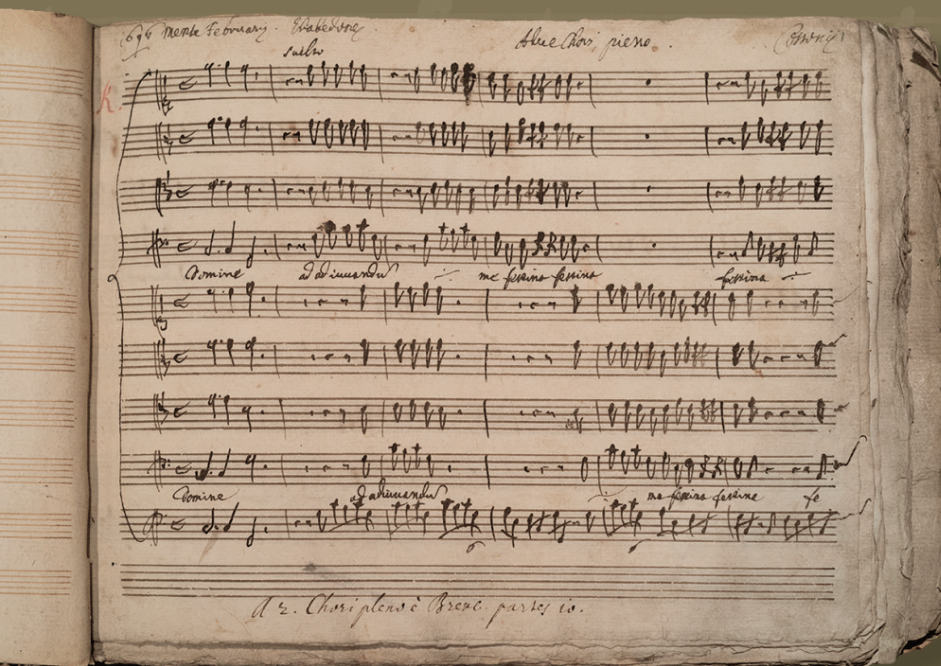 1696 mense Februarij.
A due Chori pieno.
K.
Domine ad adiuuandu me festina festina festina
Domine ad adiuuandu me festina festina fe
A 2. Chori pieno è Breve. partes 10.